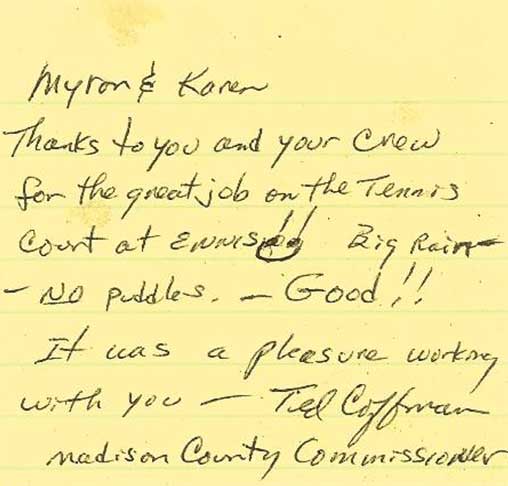 Myron & Karen
Thanks to you and your crew
for the great job on the Tennis
Court at Ennis!! Big Rain -
- NO puddles. - Good!!
It was a pleasure working
with you - Ted Coffman
Madison County Commissioner